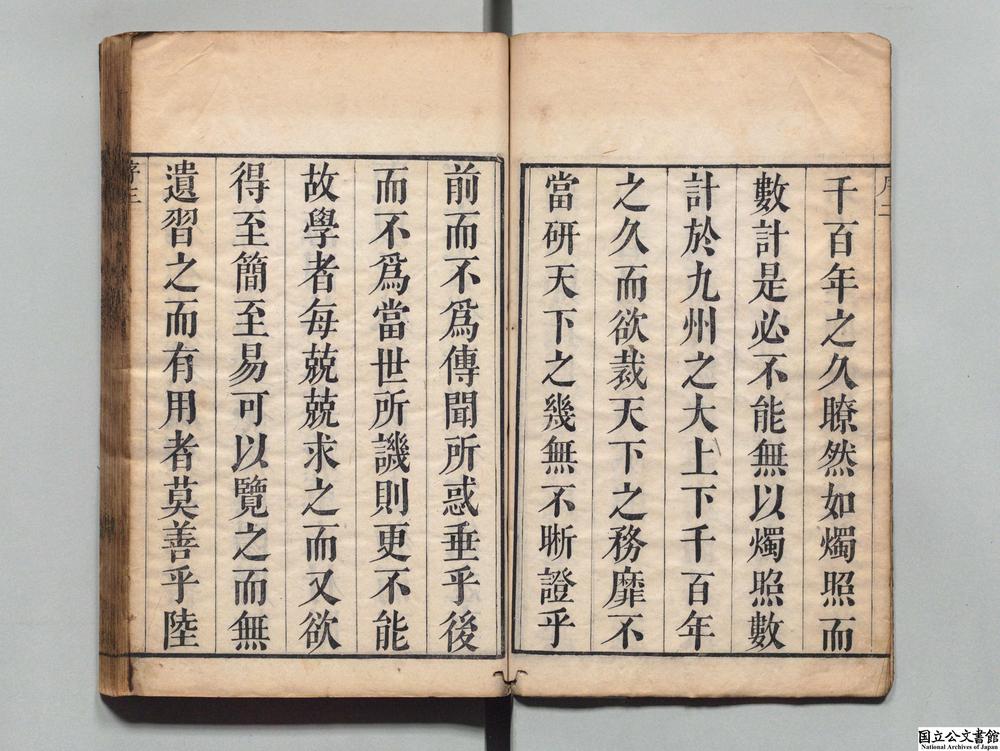 千百年之久瞭然如燭照而
數計是必不能無以燭照數
計於九州之大上下千百年
之久而欲裁天下之務靡不
當研天下之幾無不晰證乎
前而不爲傳聞所惑垂乎後
而不爲當世所譏則更不能
故學者每兢兢求之而又欲
得至簡至易可以覽之而無
遺習之而有用者莫善乎陸
序三
国立公文書館
National Archives of Japan